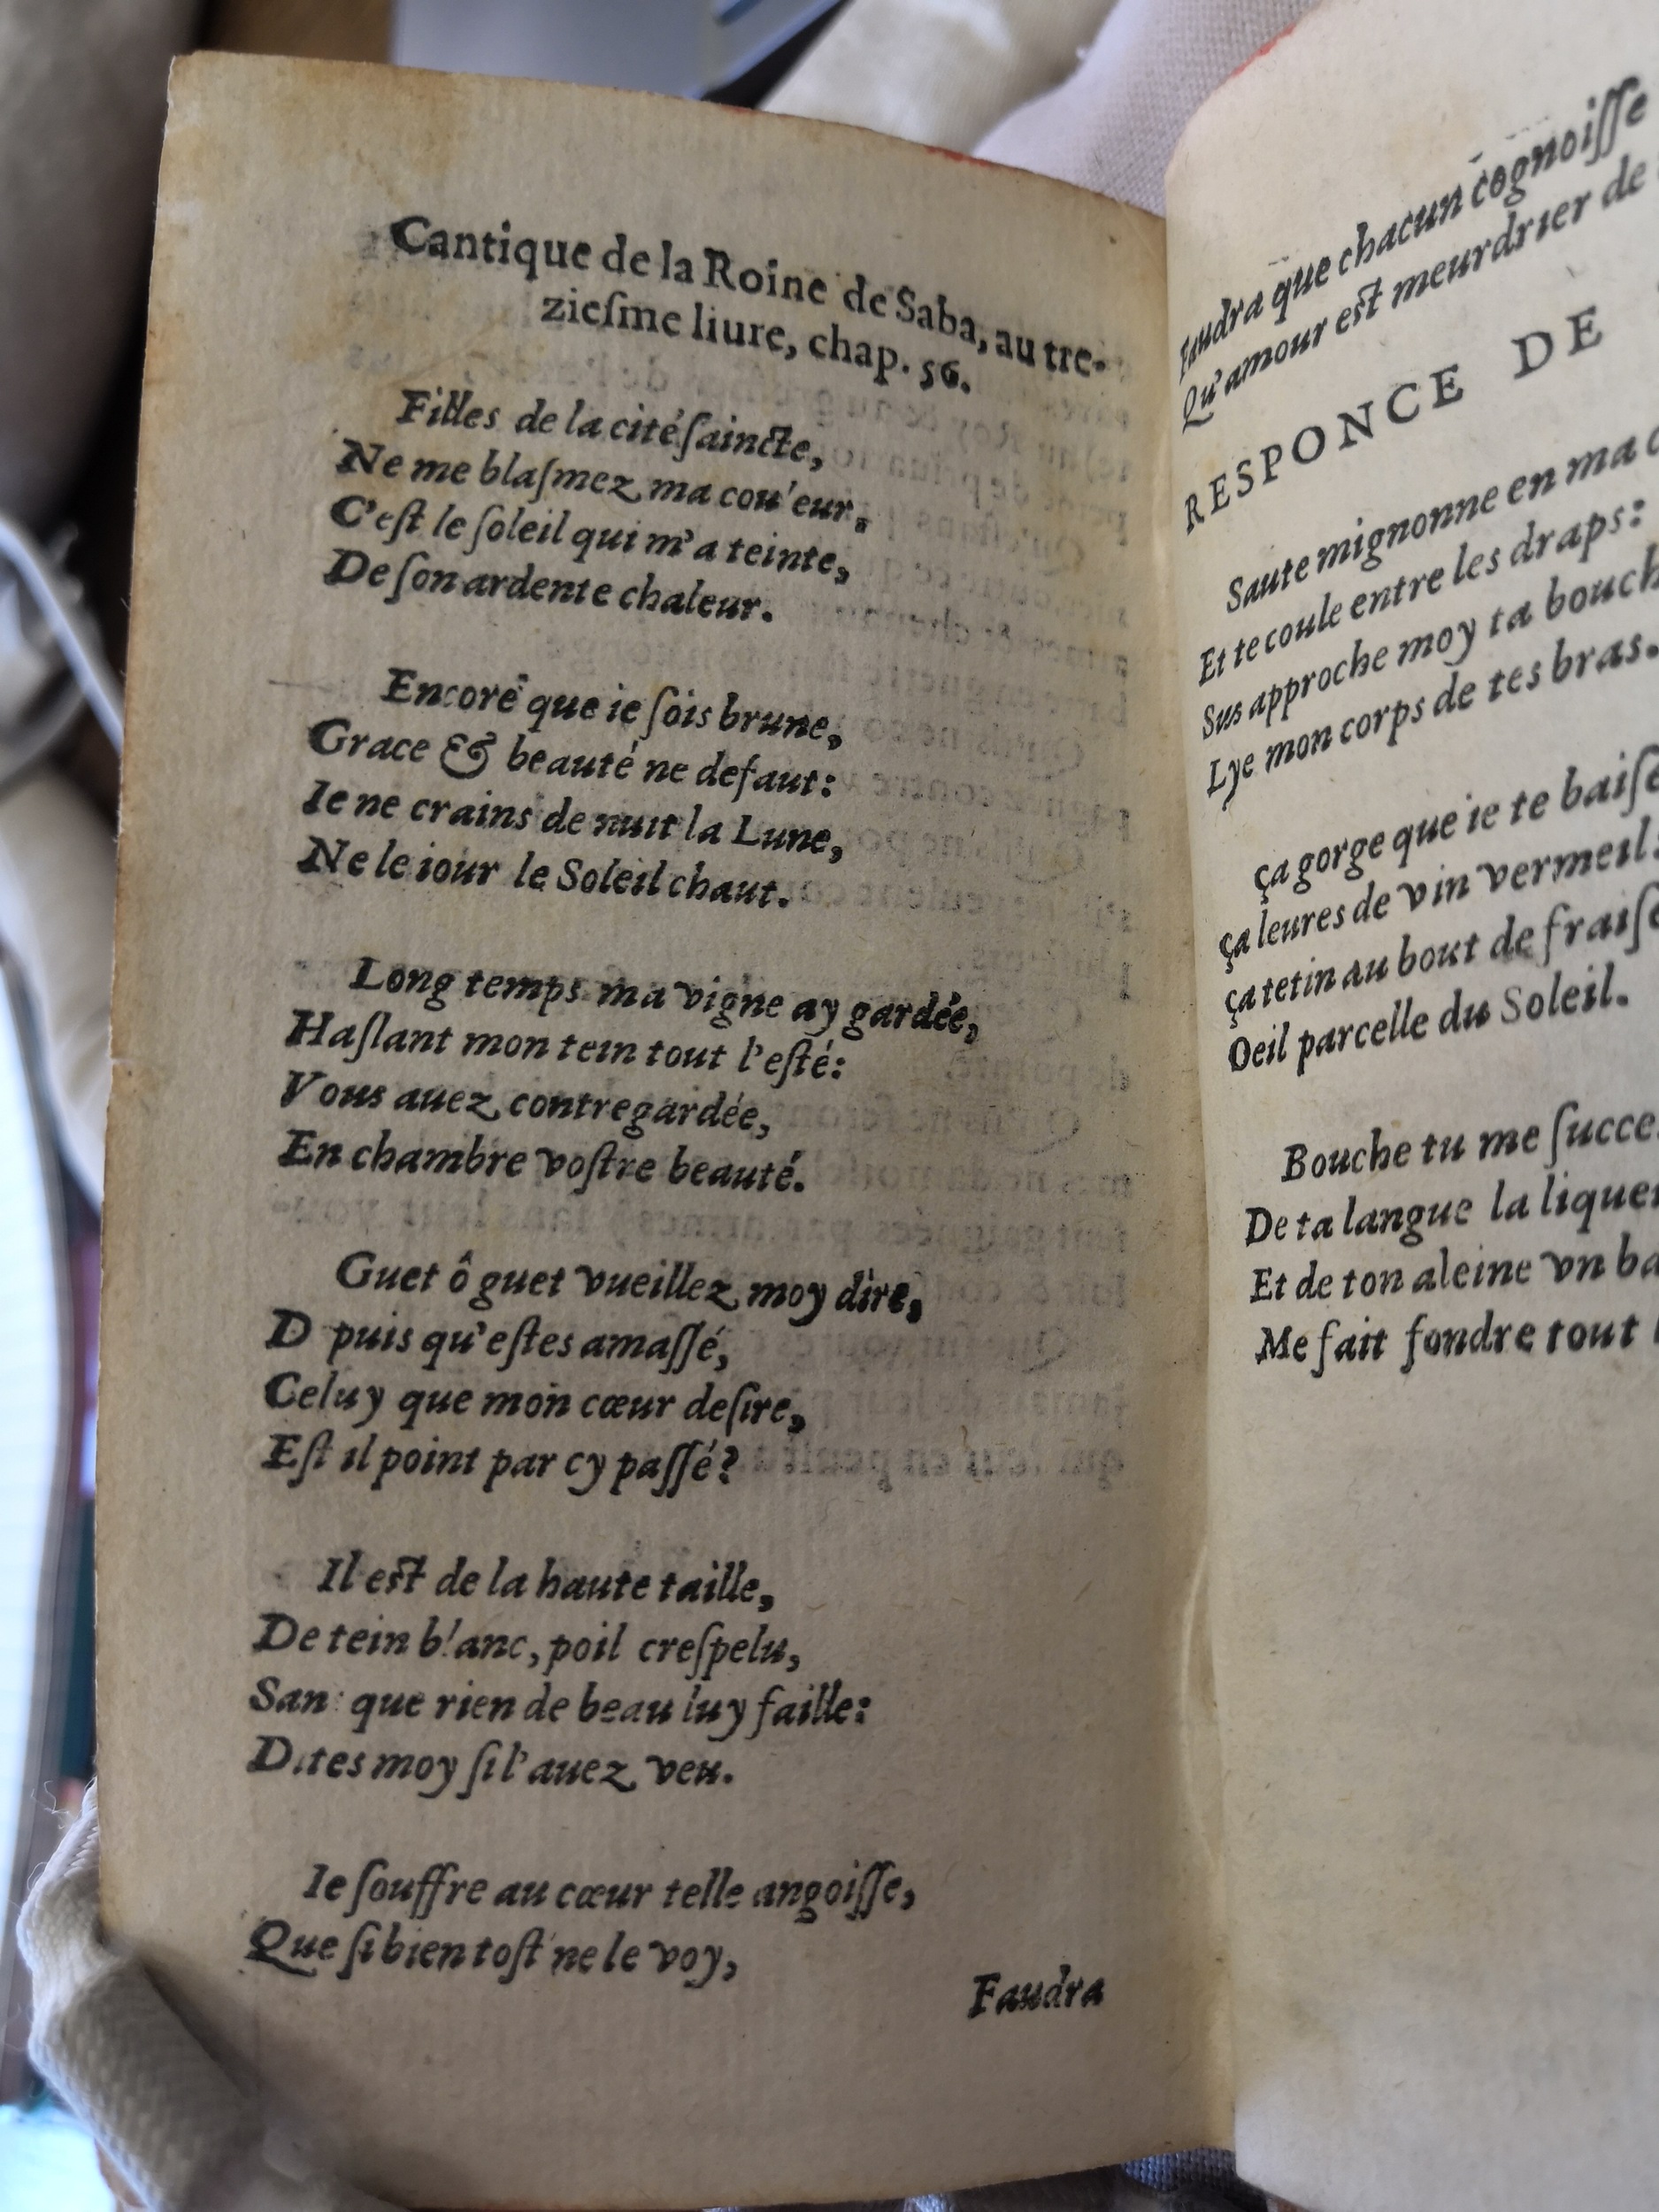 Cantique de la Roine de Saba, au tre-
zieſme liure, chap. 56.
Filles de la cité ſaincte,
Ne me blaſmez ma cou'eur,
C'eſt le ſoleil qui m'a teinte,
De ſon ardente chaleur.
Encore que ie ſois brune,
Grace & beauté ne defaut:
Ie ne crains de nuit la Lune,
Ne le iour le Soleil chaut.
Long temps ma vigne ay gardée,
Haſlant mon tein tout l'eſté:
Vous auez contregardée,
En chambre voſtre beauté.
Guet ô guet vueillez moy dire,
D puis qu'eſtes amaſſé,
Celuy que mon cœur deſire,
Eſt il point par cy paſſé?
Il eſt de la haute taille,
De tein blanc, poil creſpelu,
San que rien de beau luy faille:
Dites moy ſi l'auez veu.
Ie ſouffre au cœur telle angoiſſe,
Que ſi bien toſt ne le voy,
Faudra
Faudra que chacun cognoiſſe
Qu'amour eſt meurdrier de
RESPONCE DE
Saute mignonne en ma
Et te coule entre les draps:
Sus approche moy ta bouch
Lye mon corps de tes bras.
ça gorge que ie te baiſe
ça leures de vin vermeil:
ça tetin au bout de fraiſe
Oeil parcelle du Soleil.
Bouche tu me ſucce
De ta langue la lique
Et de ton aleine vn ba
Me fait fondre tout